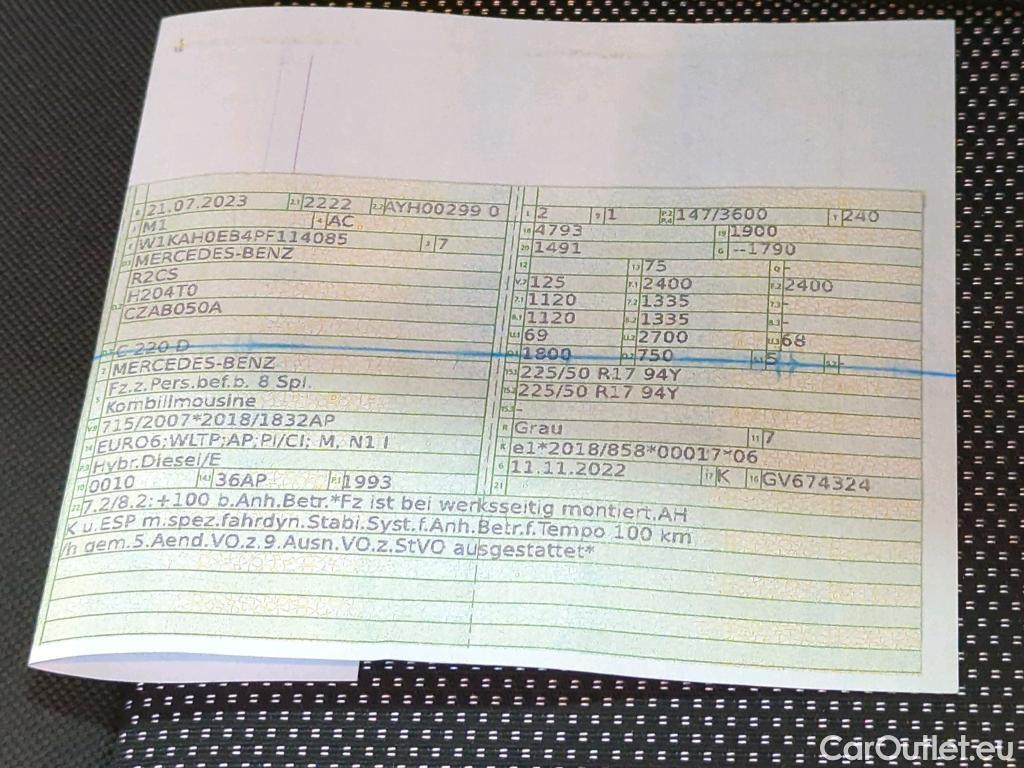 B 21.07.2023 2.1 2222 2.2 AYH00299 0
J M1 4 AC
E W1KAH0EB4PF114085 3 7
D.1 MERCEDES-BENZ
D.2 R2CS
H204T0
CZAB050A
D.3 C 220 D
2 MERCEDES-BENZ
5 Fz.z.Pers.bef.b. 8 Spl.
Kombilimousine
V.9 715/2007*2018/1832AP
14 EURO6;WLTP;AP;PI/CI; M, N1 I
P.3 Hybr.Diesel/E
10 0010 14.1 36AP P.1 1993
L 2 9 1 P.2 P.4 147/3600 T 240
18 4793 19 1900
20 1491 G --1790
12 - 13 75 Q -
V.7 125 F.1 2400 F.2 2400
7.1 1120 7.2 1335 7.3 -
8.1 1120 8.2 1335 8.3 -
U.1 69 U.2 2700 U.3 68
O.1 1800 O.2 750 S.1 5 S.2 -
15.1 225/50 R17 94Y
15.2 225/50 R17 94Y
15.3 -
R Grau 11 7
K e1*2018/858*00017*06
6 11.11.2022 17 K 16 GV674324
21
22 7.2/8.2:+100 b.Anh.Betr.*Fz ist bei werksseitig montiert.AH
K u.ESP m.spez.fahrdyn.Stabi.Syst.f.Anh.Betr.f.Tempo 100 km
/h gem.5.Aend.VO.z.9.Ausn.VO.z.StVO ausgestattet*
CarOutlet.eu